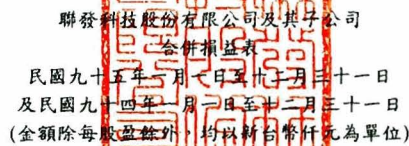 聯發科技股份有限公司及其子公司
合併損益表
民國九十五年一月一日至十二月三十一日
及民國九十四年一月一日至十二月三十一日
(金額除每股盈餘外，均以新台幣仟元為單位)